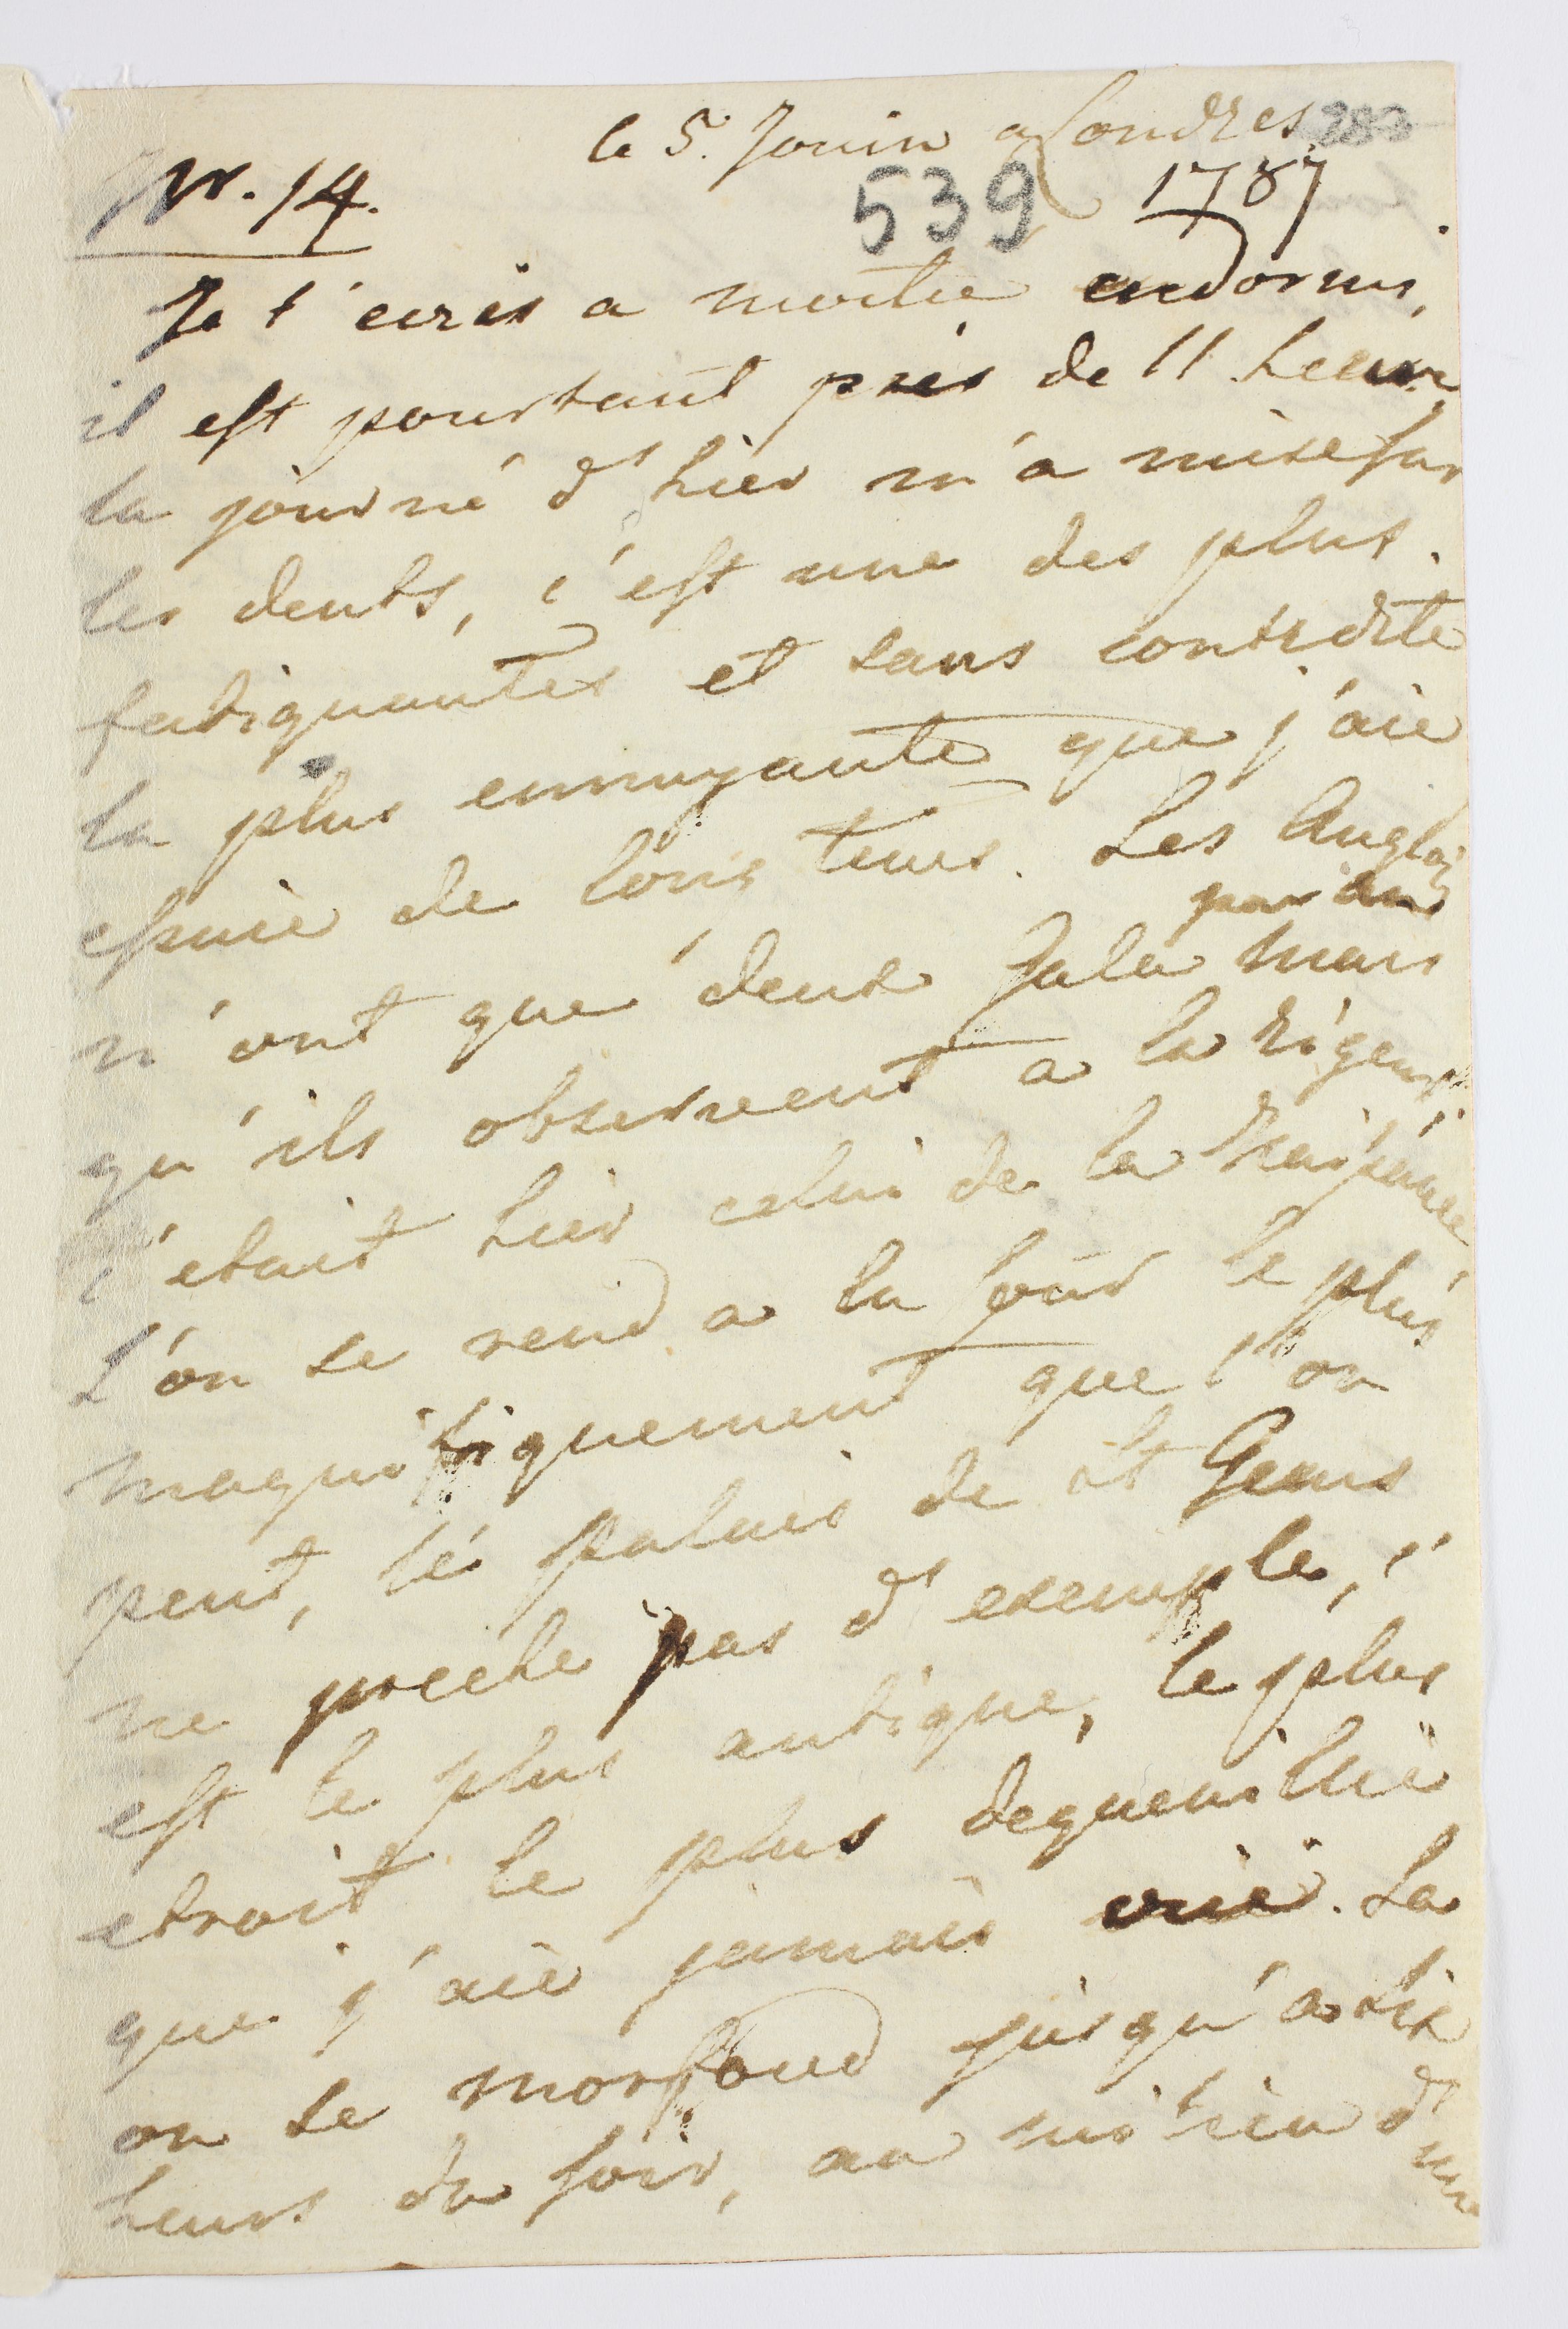 le 5. Jouin a Londres 283
Nr. 14. 539 1787
Je t'ecris a moitie endormis,
il est pourtant près de 11 heures,
la journé d'hier m'a mise sur
les dents, c'est une des plus
fatiguantes et sans contredite
la plus ennuyante que j'aie
essuié de lons tems. Les Anglois
par an
n'ont que deux Gala mais
qu'ils observent a la rigeur,
c'etait hier celui de la Naissance,
L'on se rend a la Cour le plus
magnifiquement que l'on
peut, le palais de St Gems
ne preche pas d'exemple, c'
est le plus antique, le plus
etroit le plus deguenillié
que j'aie jamais vuë. La
on se morfond jusqu'a six
heurs du soir, au milieu d'une